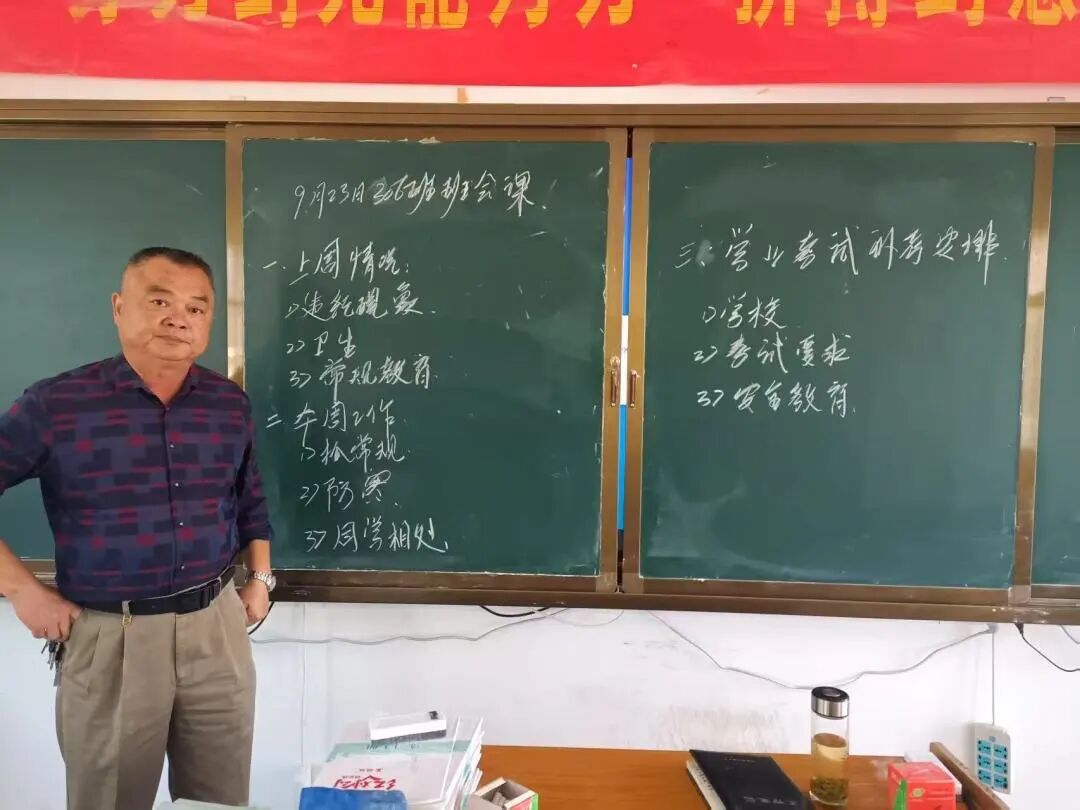 9月23日306班班会课.
一、上周情况:
1)违纪现象.
2)卫生
3)常规教育.
二 本周工作.
1)抓常规.
2)防寒.
3)同学相处.
三、学业考试补考安排.
1)学校
2)考试要求
3)安全教育.